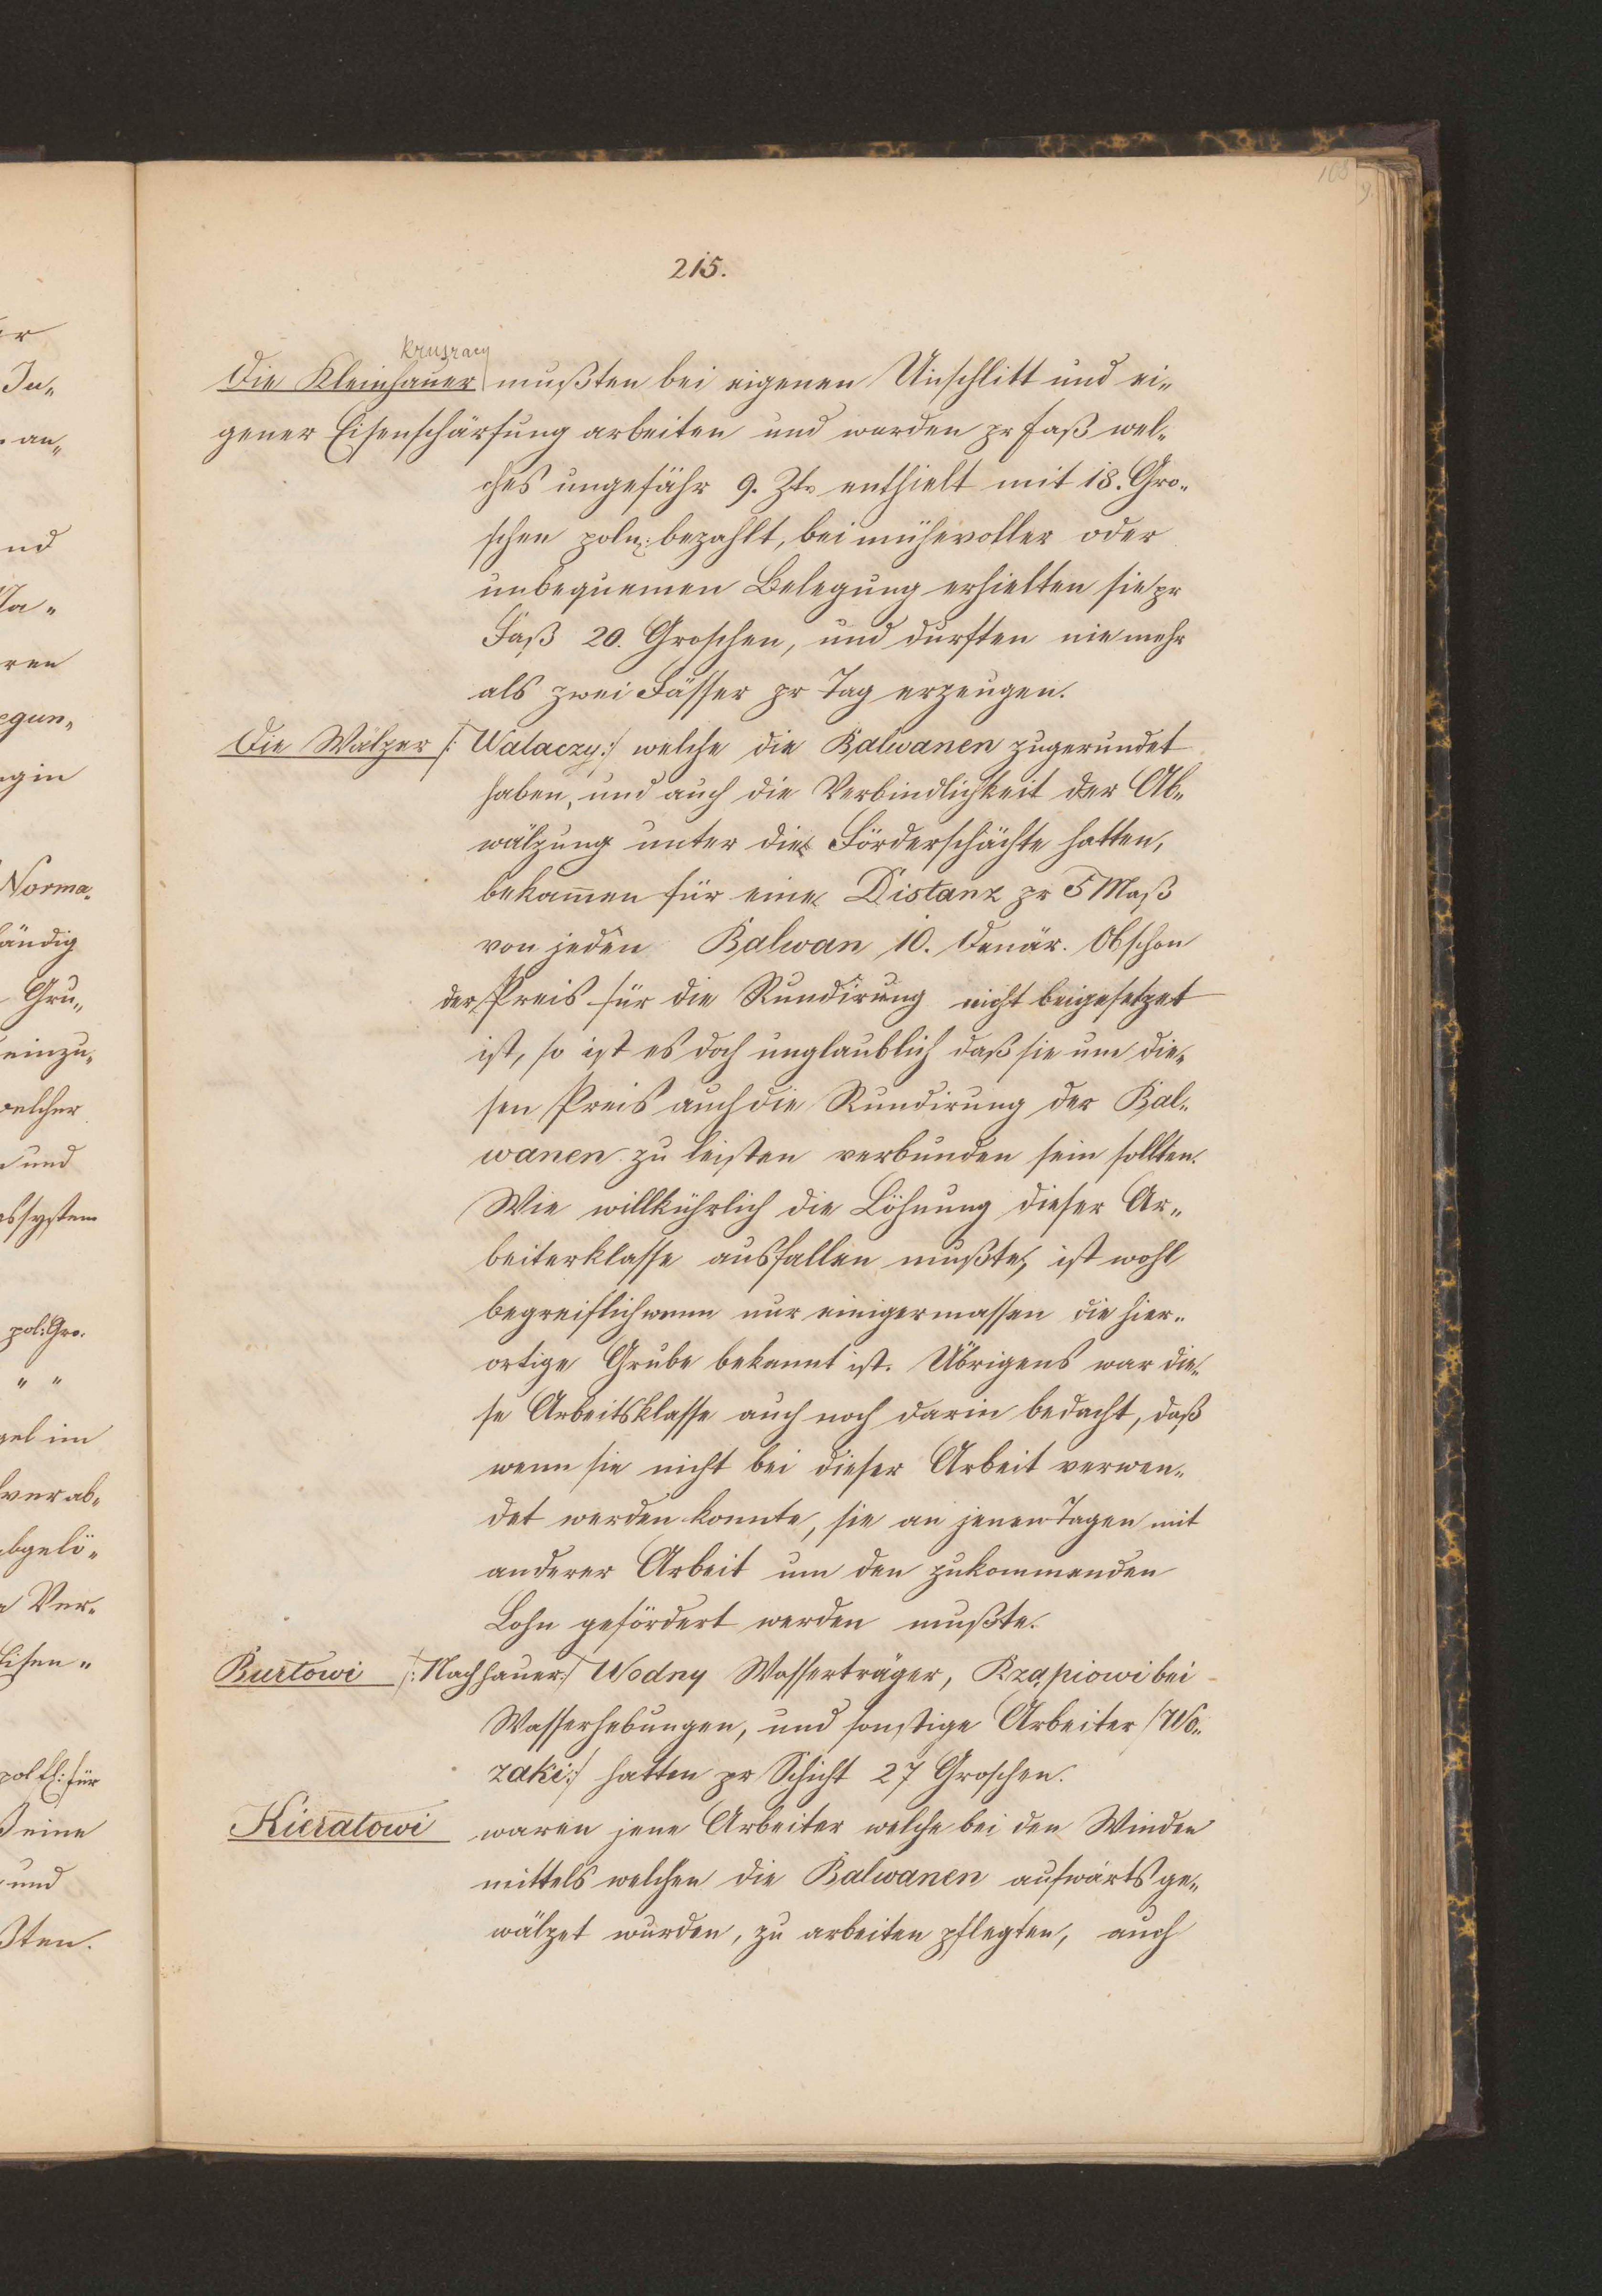 215.
kruszacy
Die Kleinhauer mußten bei eigenen Unschlitt und ei„
gener Eisenschärfung arbeiten und worden pr Faß wel„
ches ungefähr 9. Ztr enthielt mit 18. Gro„
schen poln: bezahlt, bei mühevoller oder
unbequemen Belegung erhielten sie pr
Faß 20. Groschen, und durften nie mehr
als zwei Fässer pr Tag erzeugen.
Die Wälzer /: Walaczy :/ welche die Balwanen zugerundet
haben, und auch die Verbindlichkeit der Ab„
wälzung unter die Förderschächte hatten,
bekamen für eine Distanz pr 5 Maß
von jeden Balwan 10. Denär. Obschon
der Preis für die Rundirung nicht beigesetzet
ist, so ist es doch unglaublich daß sie um die„
sen Preis auch die Rundirung der Bal„
wanen zu leisten verbunden sein sollten.
Wie willkührlich die Löhnung dieser Ar„
beiterklasse ausfallen mußte, ist wohl
begreiflich wenn nur einigermassen die hier„
ortige Grube bekannt ist. Übrigens war die„
se Arbeitsklasse auch noch darin bedacht, daß
wenn sie nicht bei dieser Arbeit verwen„
det werden konnte, sie an jenen Tagen mit
anderer Arbeit um den zukommenden
Lohn gefördert werden mußte.
Burtowi /: Nachhauer :/ Wodny Wasserträger, Rząpiowi bei
Wasserhebungen, und sonstige Arbeiter /: Wo„
zaki :/ hatten pr Schicht 27 Groschen.
Kieratowi waren jene Arbeiter welche bei den Winden
mittels welchen die Balwanen aufwärts ge„
wälzet wurden, zu arbeiten pflegten, auch